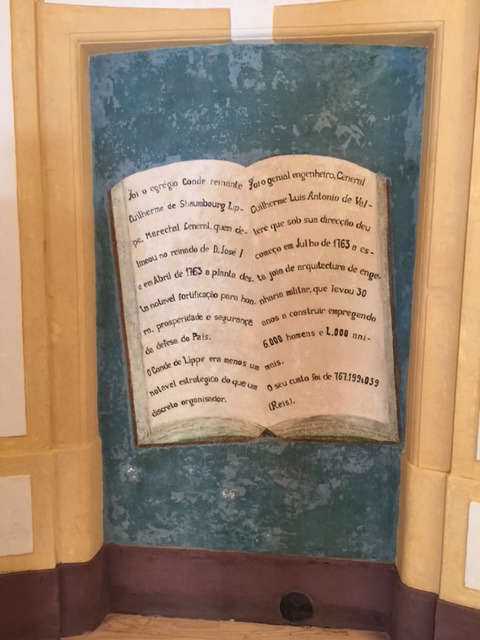 Foi o egrégio Conde reinante
Guilherme de Shaumbourg Lip-
pe, Marechal General, quem de-
lineou no reinado de D. José I
e em Abril de 1763 a planta des-
ta notavel fortificação para hon-
ra, prosperidade e segurança
da defesa do País.
O Conde de Lippe era menos um
notavel estrategico do que um
discreto organisador.
Foi o genial engenheiro, General
Guilherme Luis Antonio de Val-
leré que sob sua direcção deu
começo em Julho de 1763 a es-
ta joia de arquitectura de enge-
nharia militar, que levou 30
anos a construir empregando
6.000 homens e 4.000 ani-
mais.
O seu custo foi de 767.199$039
(Reis).